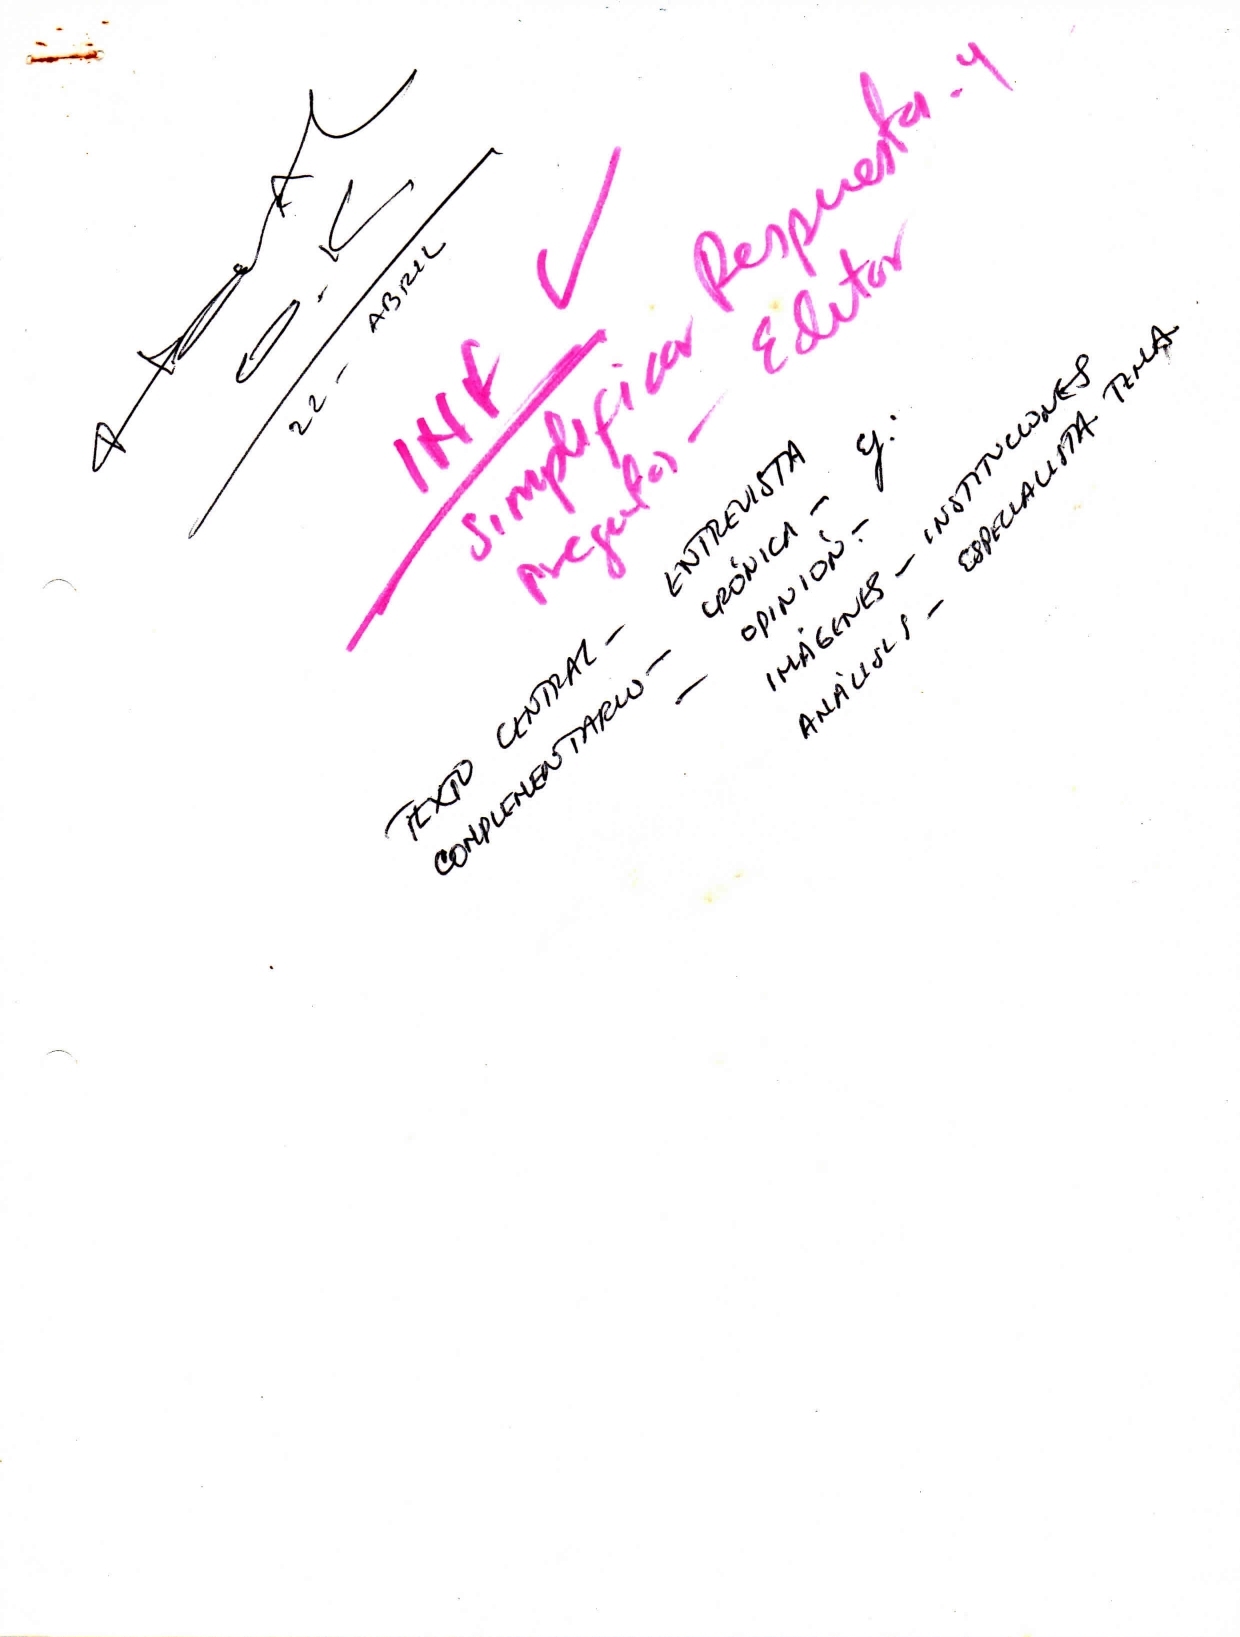 O.K
22 - ABRIL
INF
Simplificar Respuesta - y
pregutas - Editor
TEXTO CENTRAL - ENTREVISTA
COMPLEMENTARIO - CRÓNICA - y:
- OPINIÓN -
IMÁGENES - INSTITUCIONES
ANÁLISIS - ESPECIALISTA TEMA